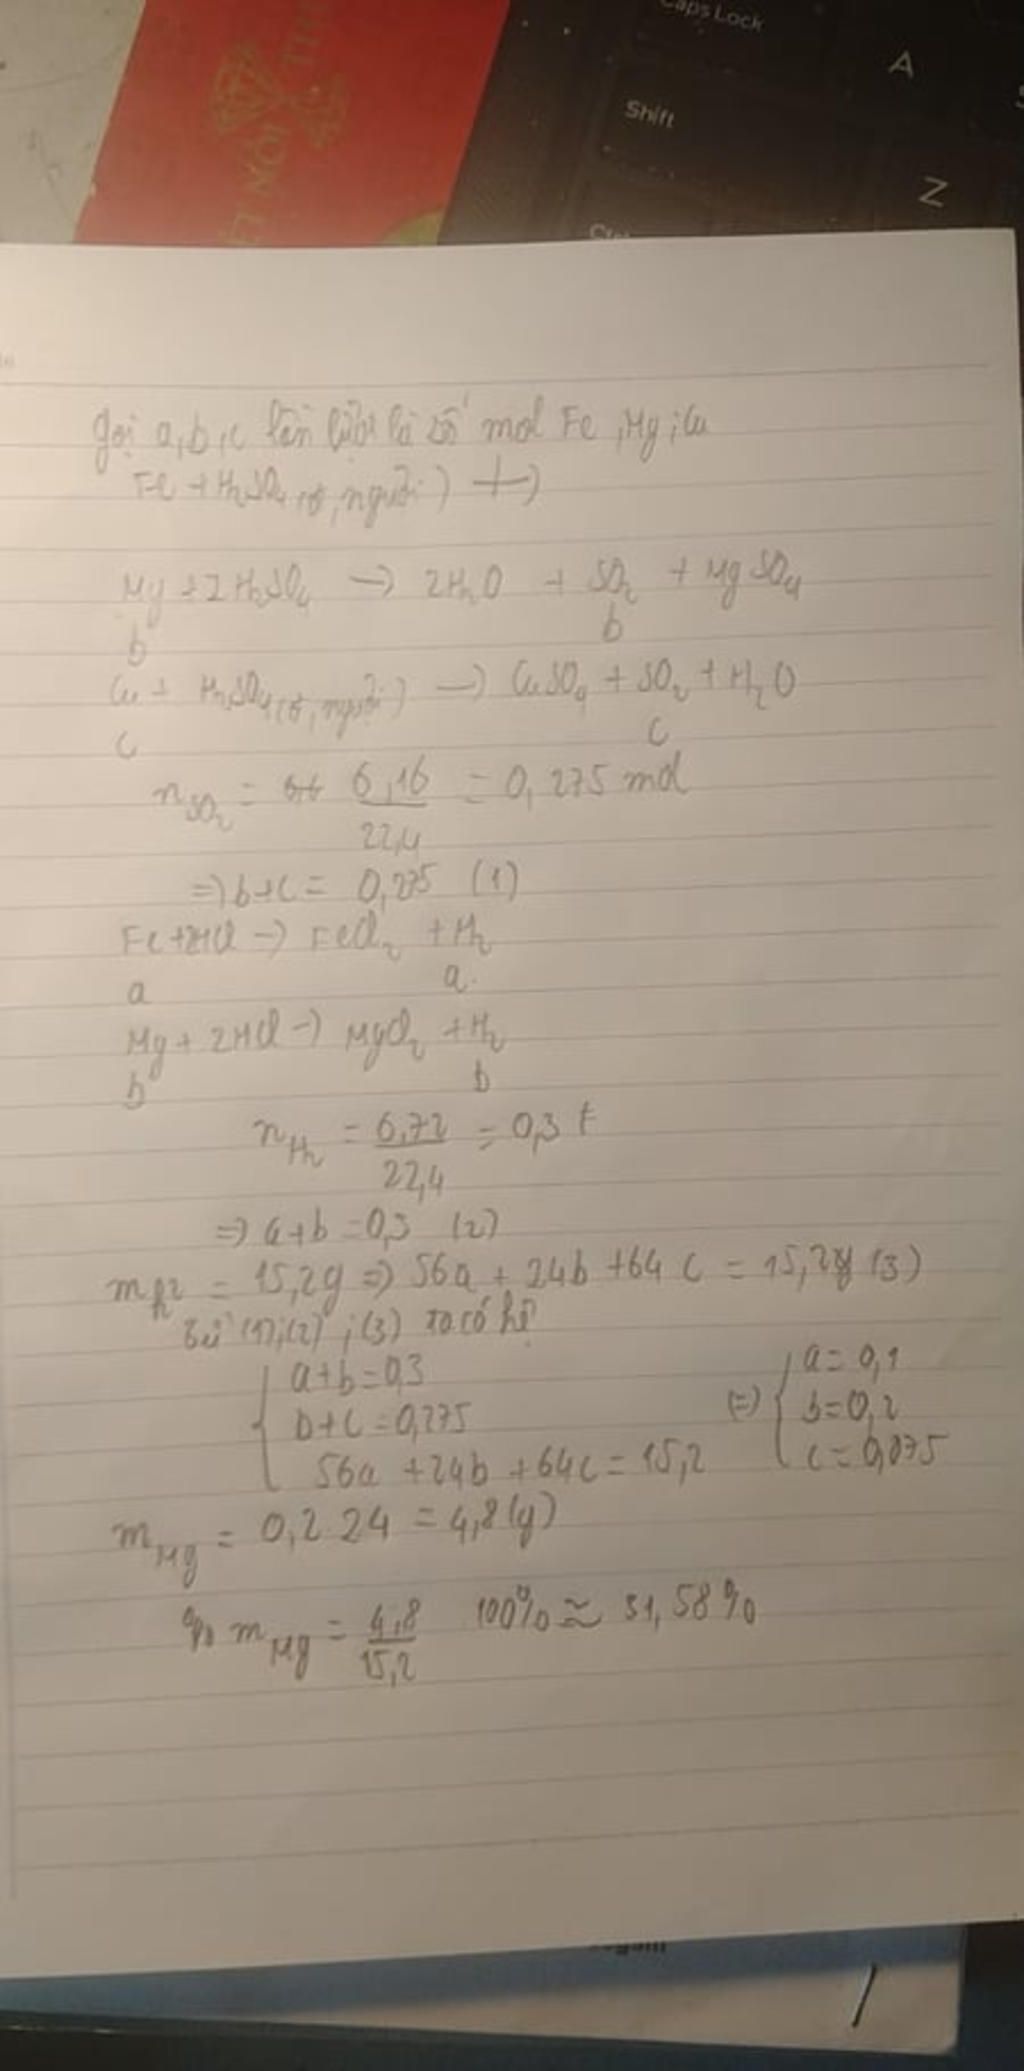 Caps Lock
A
Shift
Z
Ctrl
ẾT NỐI
Gọi a, b, c lần lượt là số mol Fe, Mg, Cu
Fe + H₂SO₄ (đ, nguội) -|->
Mg + 2H₂SO₄ -> 2H₂O + SO₂ + MgSO₄
b b
Cu + H₂SO₄ (đ, nguội) -> CuSO₄ + SO₂ + H₂O
c c
n SO₂ = 6,16/22,4 = 0,275 mol
=> b+c = 0,275 (1)
Fe + 2HCl -> FeCl₂ + H₂
a a
Mg + 2HCl -> MgCl₂ + H₂
b b
n H₂ = 6,72/22,4 = 0,3
=> a+b = 0,3 (2)
m = 15,2g => 56a + 24b + 64c = 15,2g (3)
Từ (1); (2); (3) ta có hệ
{ a+b = 0,3
b+c = 0,275
56a + 24b + 64c = 15,2
(=) { a = 0,1
b = 0,2
c = 0,075
m Mg = 0,2 24 = 4,8 (g)
% m Mg = 4,8/15,2 100% ≈ 31,58%